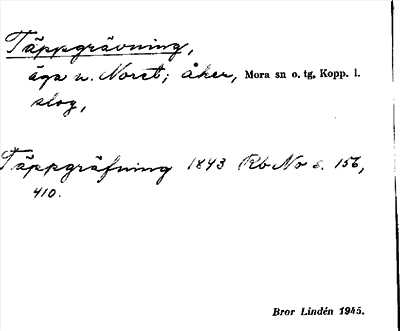 Täppgrävning,
äga n. Noret; åker, Mora sn o. tg, Kopp. l.
slog,
Täppgräfning 1843 Rb No 6. 156,
410.
Bror Lindén 1945.